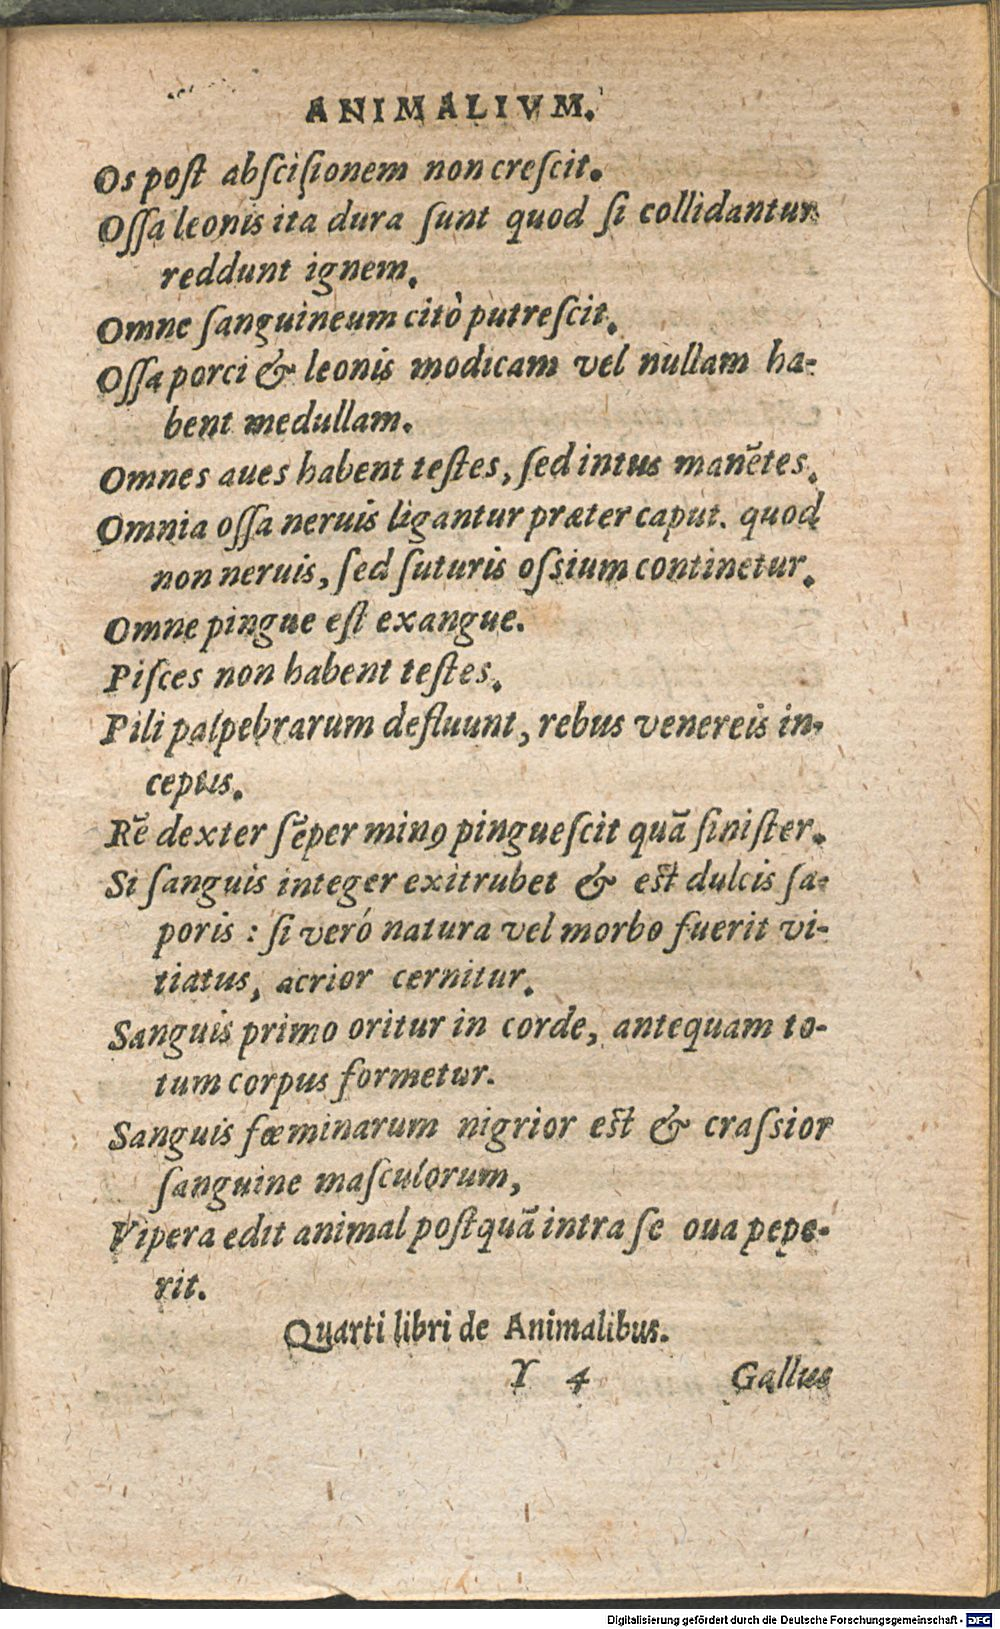 ANIMALIVM.
Os poſt abſciſionem non creſcit.
Oſſa leonis ita dura ſunt quod ſi collidantur
reddunt ignem.
Omne ſanguineum citò putreſcit.
Oſſa porci & leonis modicam vel nullam ha-
bent medullam.
Omnes aues habent teſtes, ſed intus manẽtes.
Omnia oſſa neruis ligantur præter caput. quod
non neruis, ſed ſuturis oſsium continetur.
Omne pingue eſt exangue.
Piſces non habent teſtes.
Pili palpebrarum defluunt, rebus venereis in-
ceptis.
Rẽ dexter ſẽper minꝰ pingueſcit quã ſiniſter.
Si ſanguis integer exit rubet & est dulcis ſa-
poris : ſi veró natura vel morbo fuerit vi-
tiatus, acrior cernitur.
Sanguis primo oritur in corde, antequam to-
tum corpus formetur.
Sanguis fœminarum nigrior est & craſsior
ſanguine maſculorum,
Vipera edit animal poſtquã intra ſe oua pepe-
rit.
Quarti libri de Animalibus.
Y 4 Gallus
Digitalisierung gefördert durch die Deutsche Forschungsgemeinschaft - DFG